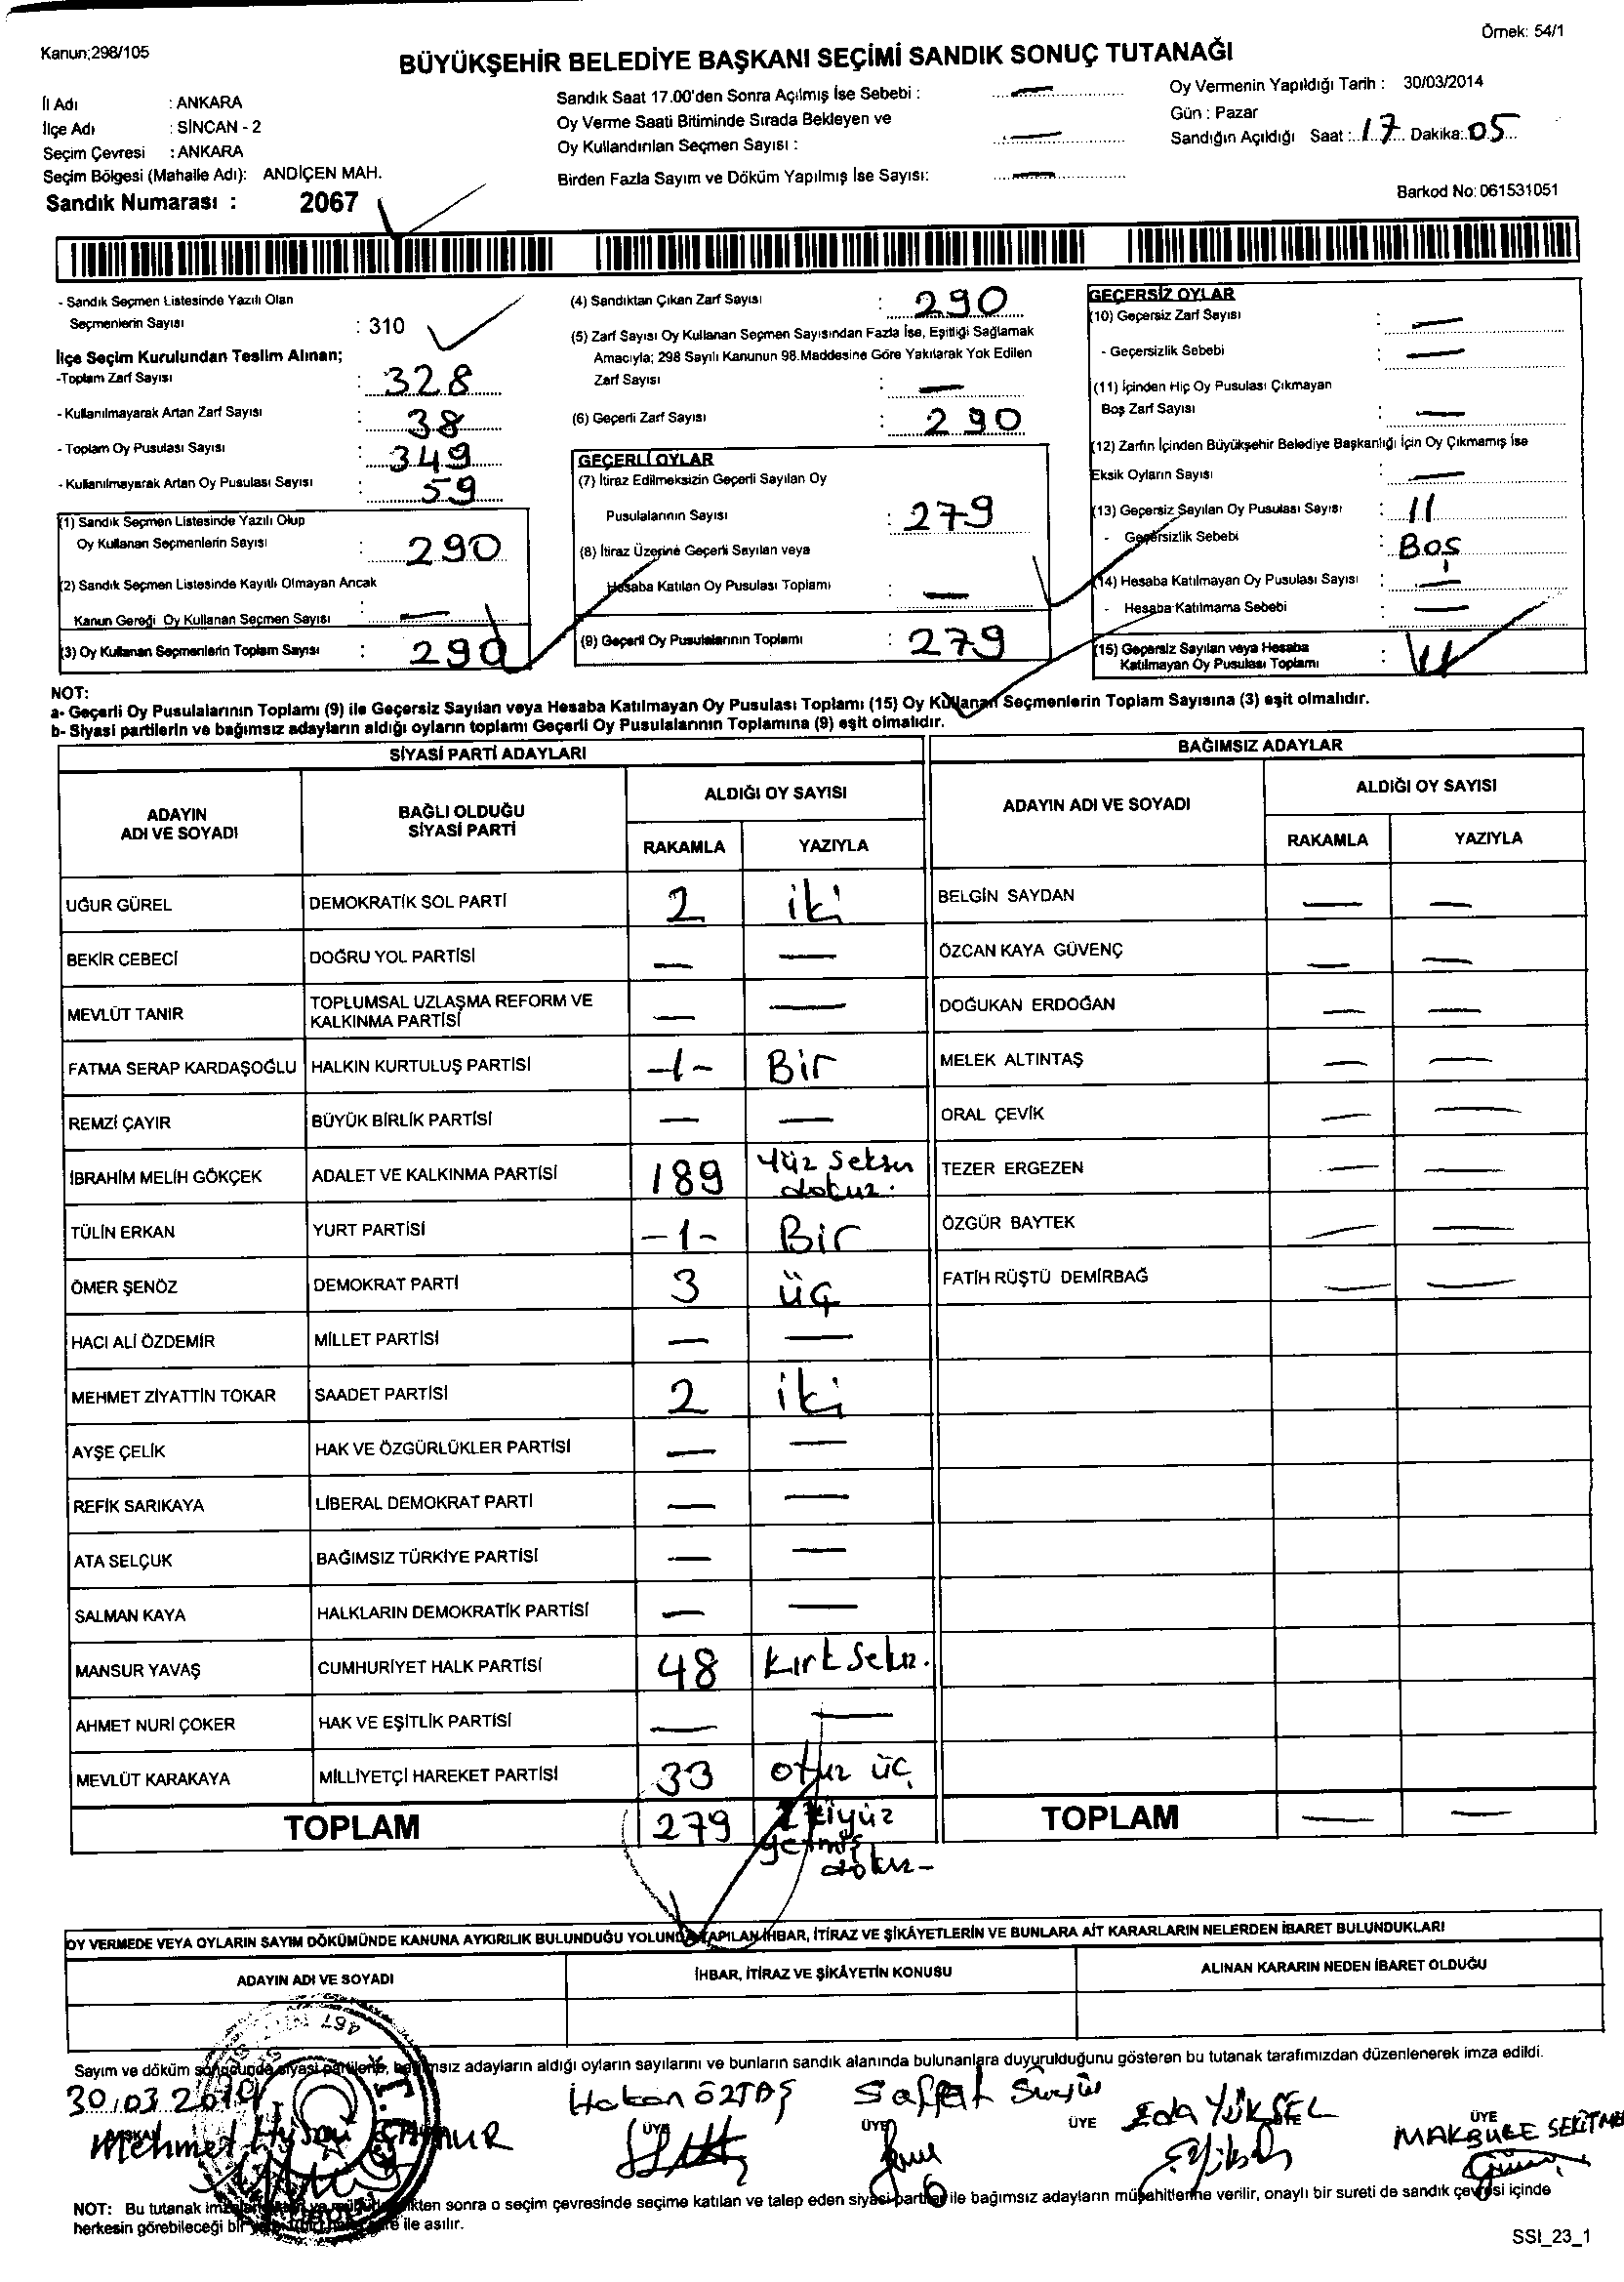 Örnek: 54/1
Kanun;298/105
BÜYÜKŞEHİR BELEDİYE BAŞKANI SEÇİMİ SANDIK SONUÇ TUTANAĞI
İl Adı : ANKARA
İlçe Adı : SİNCAN - 2
Seçim Çevresi : ANKARA
Seçim Bölgesi (Mahalle Adı): ANDİÇEN MAH.
Sandık Numarası : 2067
Sandık Saat 17.00'den Sonra Açılmış İse Sebebi : —
Oy Verme Saati Bitiminde Sırada Bekleyen ve
Oy Kullandırılan Seçmen Sayısı : —
Birden Fazla Sayım ve Döküm Yapılmış İse Sayısı: —
Oy Vermenin Yapıldığı Tarih : 30/03/2014
Gün : Pazar
Sandığın Açıldığı Saat : 17 Dakika: 05
Barkod No: 061531051
- Sandık Seçmen Listesinde Yazılı Olan
Seçmenlerin Sayısı : 310
İlçe Seçim Kurulundan Teslim Alınan;
-Toplam Zarf Sayısı : 328
- Kullanılmayarak Artan Zarf Sayısı : 38
- Toplam Oy Pusulası Sayısı : 349
- Kullanılmayarak Artan Oy Pusulası Sayısı : 59
(1) Sandık Seçmen Listesinde Yazılı Olup
Oy Kullanan Seçmenlerin Sayısı : 290
(2) Sandık Seçmen Listesinde Kayıtlı Olmayan Ancak
Kanun Gereği Oy Kullanan Seçmen Sayısı : —
(3) Oy Kullanan Seçmenlerin Toplam Sayısı : 290
(4) Sandıktan Çıkan Zarf Sayısı : 290
(5) Zarf Sayısı Oy Kullanan Seçmen Sayısından Fazla İse, Eşitliği Sağlamak
Amacıyla; 298 Sayılı Kanunun 98.Maddesine Göre Yakılarak Yok Edilen
Zarf Sayısı : —
(6) Geçerli Zarf Sayısı : 290
GEÇERLİ OYLAR
(7) İtiraz Edilmeksizin Geçerli Sayılan Oy
Pusulalarının Sayısı : 279
(8) İtiraz Üzerine Geçerli Sayılan veya
Hesaba Katılan Oy Pusulası Toplamı : —
(9) Geçerli Oy Pusulalarının Toplamı : 279
GEÇERSİZ OYLAR
(10) Geçersiz Zarf Sayısı : —
- Geçersizlik Sebebi : —
(11) İçinden Hiç Oy Pusulası Çıkmayan
Boş Zarf Sayısı : —
(12) Zarfın İçinden Büyükşehir Belediye Başkanlığı İçin Oy Çıkmamış İse
Eksik Oyların Sayısı : —
(13) Geçersiz Sayılan Oy Pusulası Sayısı : 11
- Geçersizlik Sebebi : Boş
(14) Hesaba Katılmayan Oy Pusulası Sayısı : —
- Hesaba Katılmama Sebebi : —
(15) Geçersiz Sayılan veya Hesaba
Katılmayan Oy Pusulası Toplamı : 11
NOT:
a- Geçerli Oy Pusulalarının Toplamı (9) ile Geçersiz Sayılan veya Hesaba Katılmayan Oy Pusulası Toplamı (15) Oy Kullanan Seçmenlerin Toplam Sayısına (3) eşit olmalıdır.
b- Siyasi partilerin ve bağımsız adayların aldığı oyların toplamı Geçerli Oy Pusulalarının Toplamına (9) eşit olmalıdır.
SİYASİ PARTİ ADAYLARI
ADAYIN ADI VE SOYADI BAĞLI OLDUĞU SİYASİ PARTİ ALDIĞI OY SAYISI RAKAMLA YAZIYLA
UĞUR GÜREL DEMOKRATİK SOL PARTİ 2 iki
BEKİR CEBECİ DOĞRU YOL PARTİSİ — —
MEVLÜT TANIR TOPLUMSAL UZLAŞMA REFORM VE KALKINMA PARTİSİ — —
FATMA SERAP KARDAŞOĞLU HALKIN KURTULUŞ PARTİSİ -1- Bir
REMZİ ÇAYIR BÜYÜK BİRLİK PARTİSİ — —
İBRAHİM MELİH GÖKÇEK ADALET VE KALKINMA PARTİSİ 189 Yüz Seksen dokuz.
TÜLİN ERKAN YURT PARTİSİ -1- Bir
ÖMER ŞENÖZ DEMOKRAT PARTİ 3 üç
HACI ALİ ÖZDEMİR MİLLET PARTİSİ — —
MEHMET ZİYATTİN TOKAR SAADET PARTİSİ 2 iki
AYŞE ÇELİK HAK VE ÖZGÜRLÜKLER PARTİSİ — —
REFİK SARIKAYA LİBERAL DEMOKRAT PARTİ — —
ATA SELÇUK BAĞIMSIZ TÜRKİYE PARTİSİ — —
SALMAN KAYA HALKLARIN DEMOKRATİK PARTİSİ — —
MANSUR YAVAŞ CUMHURİYET HALK PARTİSİ 48 Kırk Sekiz.
AHMET NURİ ÇOKER HAK VE EŞİTLİK PARTİSİ — —
MEVLÜT KARAKAYA MİLLİYETÇİ HAREKET PARTİSİ 33 otuz üç
TOPLAM 279 İkiyüz yetmiş dokuz-
BAĞIMSIZ ADAYLAR
ADAYIN ADI VE SOYADI ALDIĞI OY SAYISI RAKAMLA YAZIYLA
BELGİN SAYDAN — —
ÖZCAN KAYA GÜVENÇ — —
DOĞUKAN ERDOĞAN — —
MELEK ALTINTAŞ — —
ORAL ÇEVİK — —
TEZER ERGEZEN — —
ÖZGÜR BAYTEK — —
FATİH RÜŞTÜ DEMİRBAĞ — —
TOPLAM — —
OY VERMEDE VEYA OYLARIN SAYIM DÖKÜMÜNDE KANUNA AYKIRILIK BULUNDUĞU YOLUNDA YAPILAN İHBAR, İTİRAZ VE ŞİKÂYETLERİN VE BUNLARA AİT KARARLARIN NELERDEN İBARET BULUNDUKLARI
ADAYIN ADI VE SOYADI İHBAR, İTİRAZ VE ŞİKÂYETİN KONUSU ALINAN KARARIN NEDEN İBARET OLDUĞU
Sayım ve döküm sonucunda siyasi partilerin, bağımsız adayların aldığı oyların sayılarını ve bunların sandık alanında bulunanlara duyurulduğunu gösteren bu tutanak tarafımızdan düzenlenerek imza edildi.
30.03.2014
Mehmet
Hakan ÖZTAŞ
Saffet
Eda YÜKSEL
MAKBULE
ÜYE ÜYE ÜYE ÜYE
NOT: Bu tutanak sonra o seçim çevresinde seçime katılan ve talep eden siyasi partiler ile bağımsız adayların müşahitlerine verilir, onaylı bir sureti de sandık çevresi içinde
herkesin görebileceği bir ile asılır.
SSI_23_1